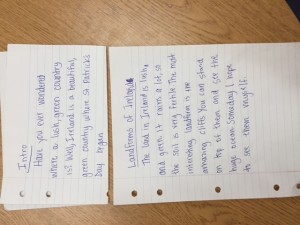 Intro
Have you ever wonderd
where a lush, green country
is? Well, Ireland is a beautiful,
green country where St. Patrick's
Day began.
Landforms of Ireland
The land in Ireland is lush,
and green. It rains a lot, so
the soil is very fertile. The most
interesting landform is the
amazing cliffs. You can stand
on top of them and see the
huge ocean. Someday I hope
to see them myself.